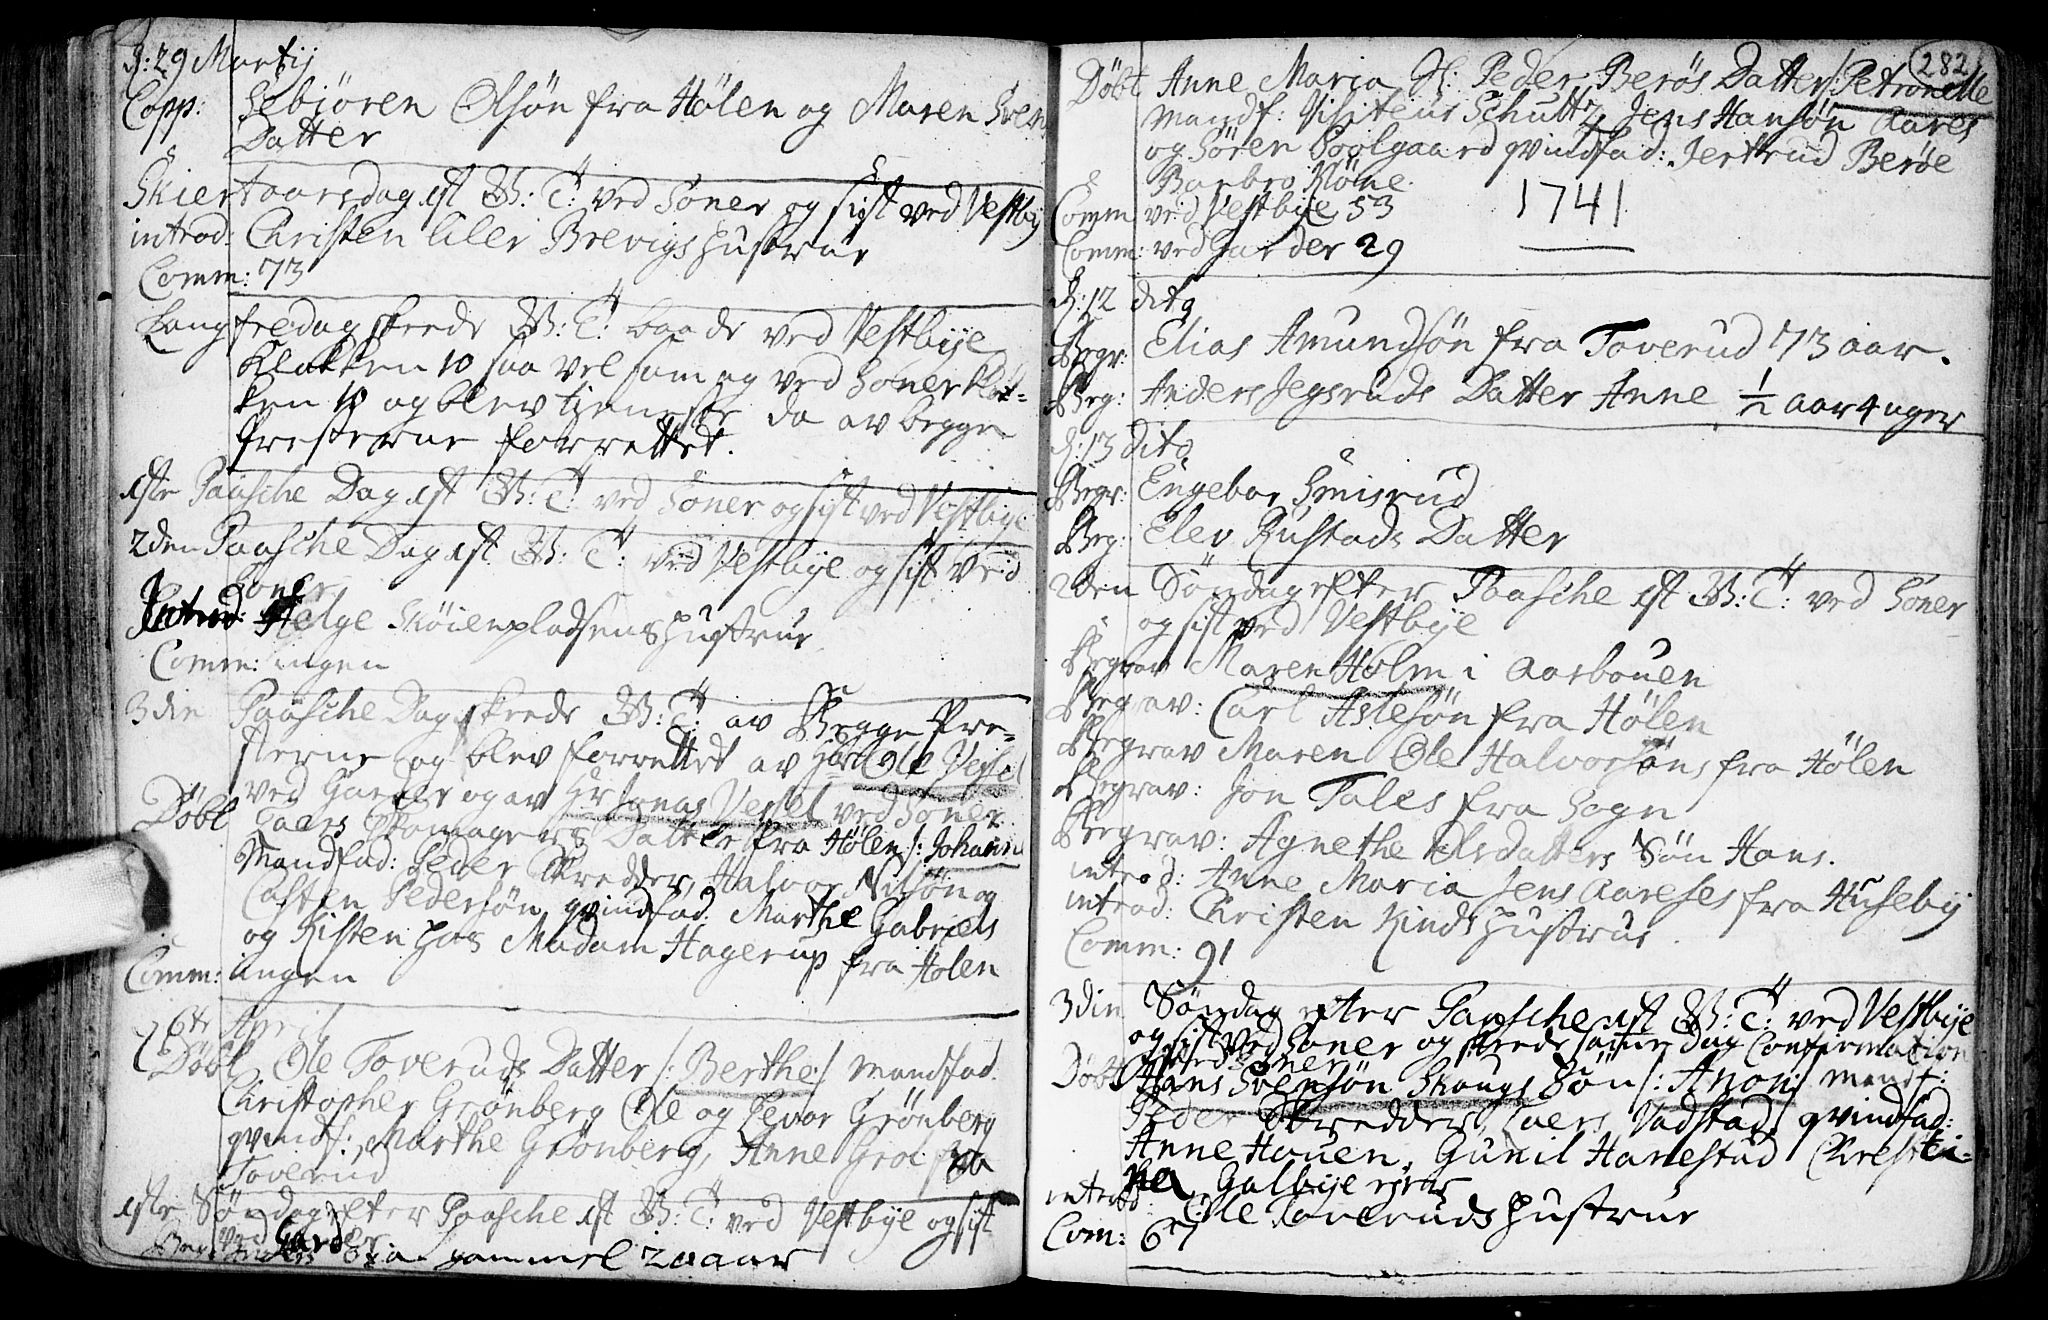 d: 29 Martij
Copp: Sebjören Olsøn fra Hølen og Maren Sven
Datter
Skiertoarsdag 1st W: T: ved Soner og sist ved Vestby
introd: Christen liler Brevigs hustrue
Comm: 73
Langfredag skeede W: T: baade ved Vestbye
Klokken 10 saa vel som og ved Soner Klok=
ken 10 og blev tieneste da av begge
Presterne forrettet.
1ste Paasche Dag 1st W: T: ved Soner og sist ved Vestbye
2den Paasche Dag 1st W: T: ved Vestbye og sist ved
Soner
Introd: Helge Skøienpladsens hustrue
Comm: ingen
3die Paasche Dag skeede W: T: av Begge Pre=
sterne og blev forrettet av Ole Vessel
ved Garder og av Hr Jonas Vessel ved Soner
Døbt Laers Datter fra Hølen /: Johanne
Mandfad: Peder Skredder, Halvor Nilsøn og
Casten Pedersøn qvindfad: Marthe Gabriels
og Kisten hos Madam Hagerup fra Hølen
Comm: ingen
d 6te April
Døbt Ole Toveruds Datter /: Berthe :/ mandfad
Christopher Grønberg Ole og Grønberg
qvindf: Marthe Grønberg, Anne Groe fra
Toverud
1ste Søndag efter Paasche 1st W: T: ved Vestbye og sist
ved Garder
gammel 20 aar
282
Døbt Anne Maria Sl: Peder Berøs Datter /: Petronelle
mandf: Visiteur Schultz, Jens Hansøn Aares
og Søren Soolgaard qvindfad: Jertrud Berøe
Barbro Kløne.
Comm ved Vestbye 53 1741
Comm: ved Garder 29
d: 12 dito
Begr: Elias Amundsøn fra Toverud 73 aar.
Beg: Anders Jegsruds Datter Anne ½ aar 4 uger
d: 13 dito
Begr: Engebor Smisrud
Beg: Elev Rustads Datter
2den Søndag efter Paasche 1st W: T: ved Soner
og sist ved Vestbye
Begrav Maren Holm i Aasbouen
Begrav: Carl Aslesøn fra Hølen
Begrav Maren Ole Halvorsøns fra Hølen
Begrav: Jon Tales fra Sogn
Begrav: Agnethe Olsdatters Søn Hans.
introd: Anne Maria Jens Aareses fra Huseby
introd: Christen Kinds hustrue
Comm: 91
3die Søndag efter Paasche 1st W: T: ved Vestbye
og sist ved Soner og skeede samme dag Confirmation
ved Soner
Døbt Hans Svensøn Skougs Søn /: Anon :/ mandf:
Peder Skredder, Laers Vadstad, qvindfad:
Anne Houen, Gunil Harestad Christi=
na Galbye
introd: Ole Toveruds hustrue
Com: 67